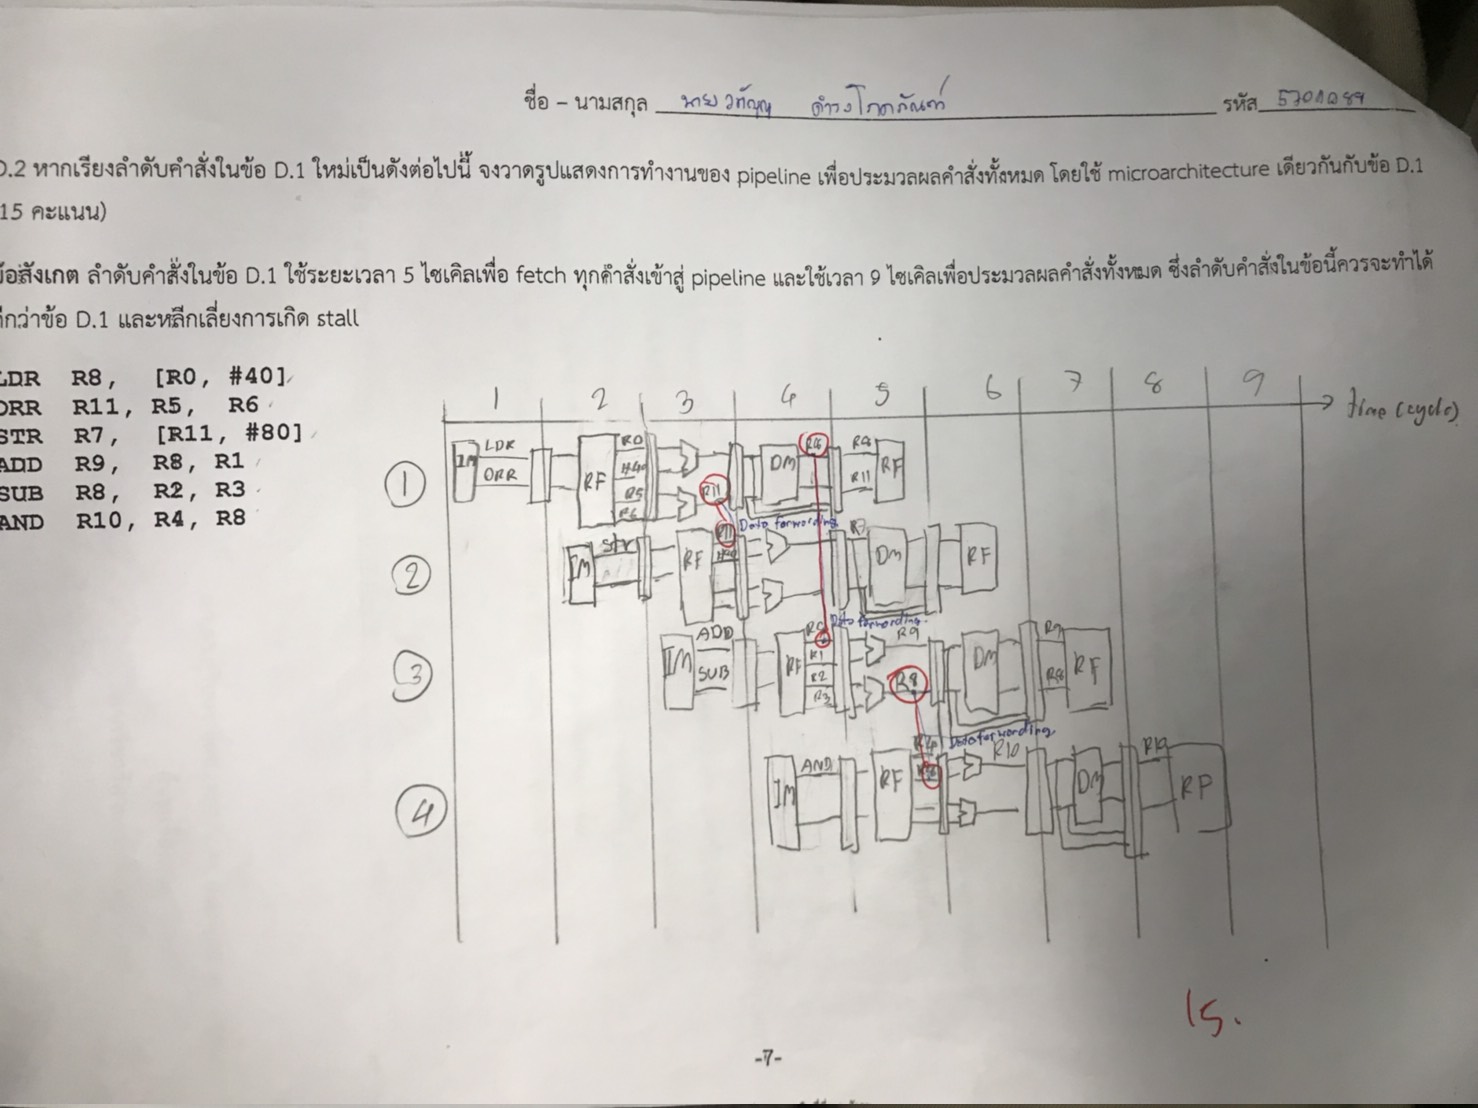 ชื่อ – นามสกุล นาย รหัส
D.2 หากเรียงลำดับคำสั่งในข้อ D.1 ใหม่เป็นดังต่อไปนี้ จงวาดรูปแสดงการทำงานของ pipeline เพื่อประมวลผลคำสั่งทั้งหมด โดยใช้ microarchitecture เดียวกันกับข้อ D.1
15 คะแนน)
ข้อสังเกต ลำดับคำสั่งในข้อ D.1 ใช้ระยะเวลา 5 ไซเคิลเพื่อ fetch ทุกคำสั่งเข้าสู่ pipeline และใช้เวลา 9 ไซเคิลเพื่อประมวลผลคำสั่งทั้งหมด ซึ่งลำดับคำสั่งในข้อนี้ควรจะทำได้
ดีกว่าข้อ D.1 และหลีกเลี่ยงการเกิด stall
LDR R8, [R0, #40]
ORR R11, R5, R6
STR R7, [R11, #80]
ADD R9, R8, R1
SUB R8, R2, R3
AND R10, R4, R8
1 2 3 4 5 6 7 8 9 time (cycle)
1 IM LDR ORR RF R0 #40 R5 R6 R11 DM R8 R8 R11 RF
Data forwarding
2 IM str RF R11 R7 DM RF
Data forwarding
3 IM ADD SUB RF R8 R1 R2 R3 R9 R8 DM R9 R8 RF
Data forwarding
4 IM AND RF R4 R8 R10 DM R10 RF
15.
-7-